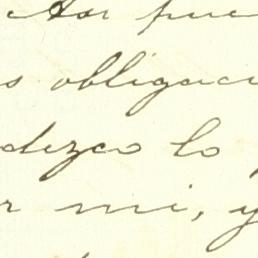 Asi pue
s obligaci
dezco lo
r mi, y